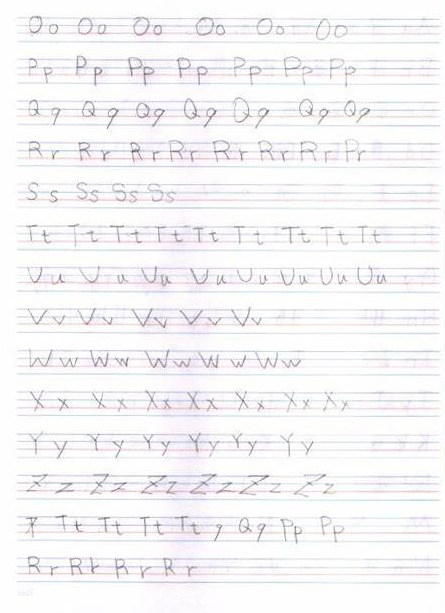 Oo Oo Oo Oo Oo Oo
Pp Pp Pp Pp Pp Pp Pp
Qq Qq Qq Qq Qq Qq Qq
Rr Rr Rr Rr Rr Rr Rr Pr
Ss Ss Ss Ss
Tt Tt Tt Tt Tt Tt Tt Tt Tt
Uu Uu Uu Uu Uu Uu Uu Uu
Vv Vv Vv Vv Vv
Ww Ww Ww Ww Ww
Xx Xx Xx Xx Xx Xx Xx
Yy Yy Yy Yy Yy Yy
Zz Zz Zz Zz Zz Zz
Tt Tt Tt Tt q Qq Pp Pp
Rr Rr Rr Rr